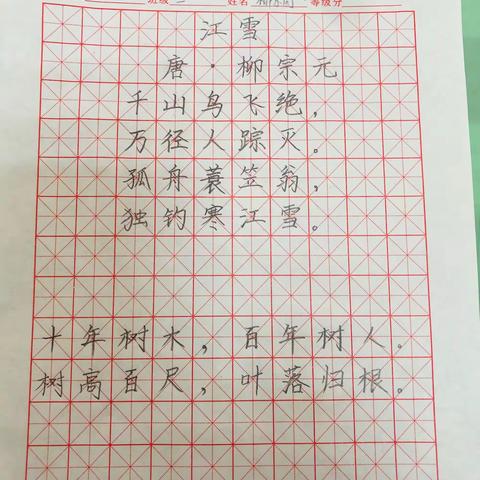 班级 姓名 等级分
江雪
唐·柳宗元
千山鸟飞绝，
万径人踪灭。
孤舟蓑笠翁，
独钓寒江雪。
十年树木，百年树人。
树高百尺，叶落归根。